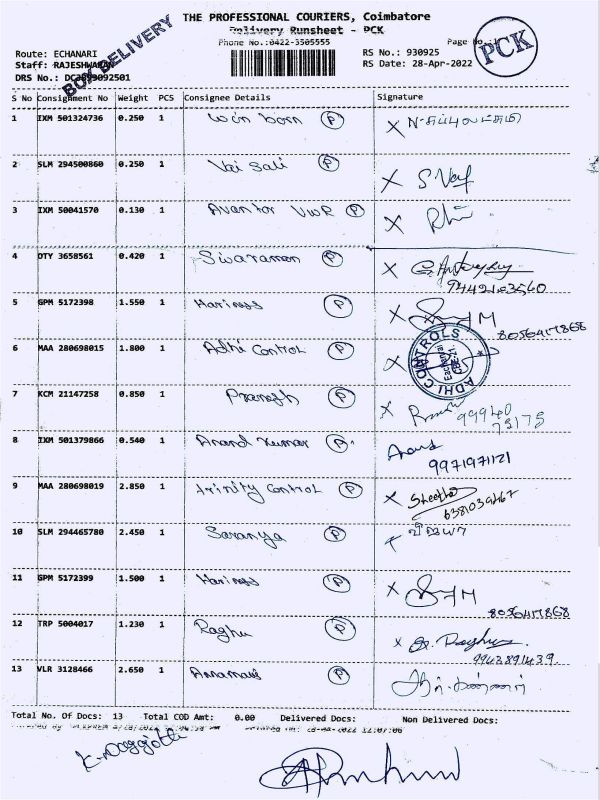 THE PROFESSIONAL COURIERS, Coimbatore
Delivery Runsheet - PCK
Phone No.:0422-3505555
BOX DELIVERY
PCK
Page No.
Route: ECHANARI
RS No.: 930925
Staff: RAJESHWARAN
RS Date: 28-Apr-2022
DRS No.:
S No Consignment No Weight PCS Consignee Details Signature
1 IXM 501324736 0.250 1 Win born P
2 SLM 294500860 0.250 1 Vaisali P
3 IXM 50041570 0.130 1 Avantor VWR P
4 OTY 3658561 0.420 1 Sivaraman P
9442103560
5 GPM 5172398 1.550 1 Hariness P
8056417868
6 MAA 280698015 1.800 1 Adhi Control P ADHI CONTROLS
7 KCM 21147258 0.850 1 Pranesh P
99940
75175
8 IXM 501379866 0.540 1 Anand Kumar P Anand
9971971121
9 MAA 280698019 2.850 1 trinity Control P
10 SLM 294465780 2.450 1 Saranya P
11 GPM 5172399 1.500 1 Hariness P
8056417868
12 TRP 5004017 1.230 1 Raghu P
9943891439
13 VLR 3128466 2.650 1 P
Total No. Of Docs: 13 Total COD Amt: 0.00 Delivered Docs: Non Delivered Docs: